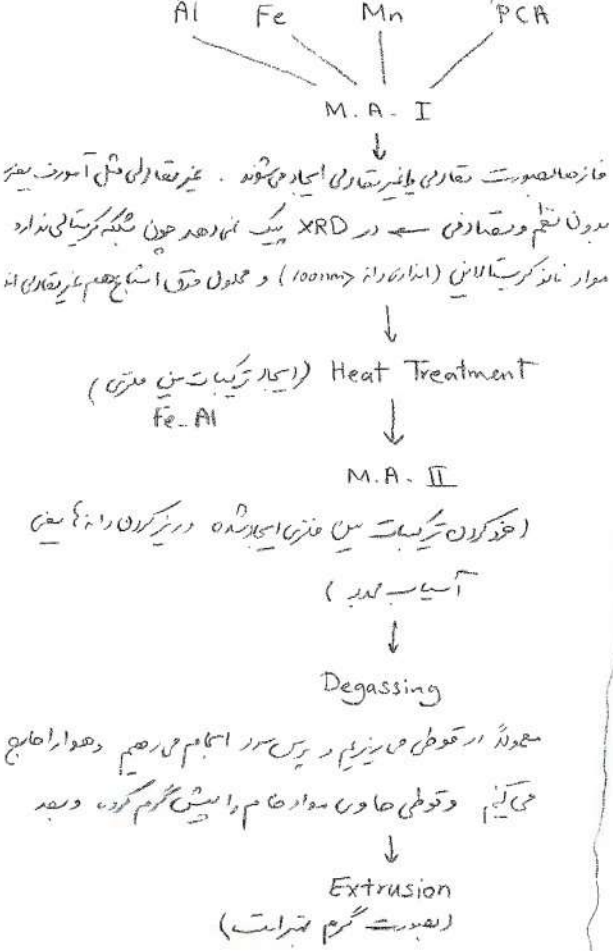 Al Fe Mn PCA
M. A. I
فازها بصورت تعادلی یا غیرتعادلی ایجاد می‌شوند. غیرتعادلی مثل آمورف یعنی
بدون نظم و تصادفی در XRD پیک نمی‌دهد چون شبکه کریستالی ندارد
مواد نانو کریستالاینی (اندازه دانه <100nm) و محلول فوق اشباع هم غیرتعادلی اند
Heat Treatment (ایجاد ترکیبات بین فلزی)
Fe-Al
M.A. II
(خرد کردن ترکیبات بین فلزی ایجاد شده و ریز کردن دانه‌ها یعنی
آسیاب مجدد)
Degassing
معمولاً در قوطی می‌ریزیم و پرس سرد انجام می‌دهیم و هوا را خارج
می‌کنیم و قوطی حاوی مواد خام را پیش گرم کرده و بعد
Extrusion
(بصورت گرم بهتر است)